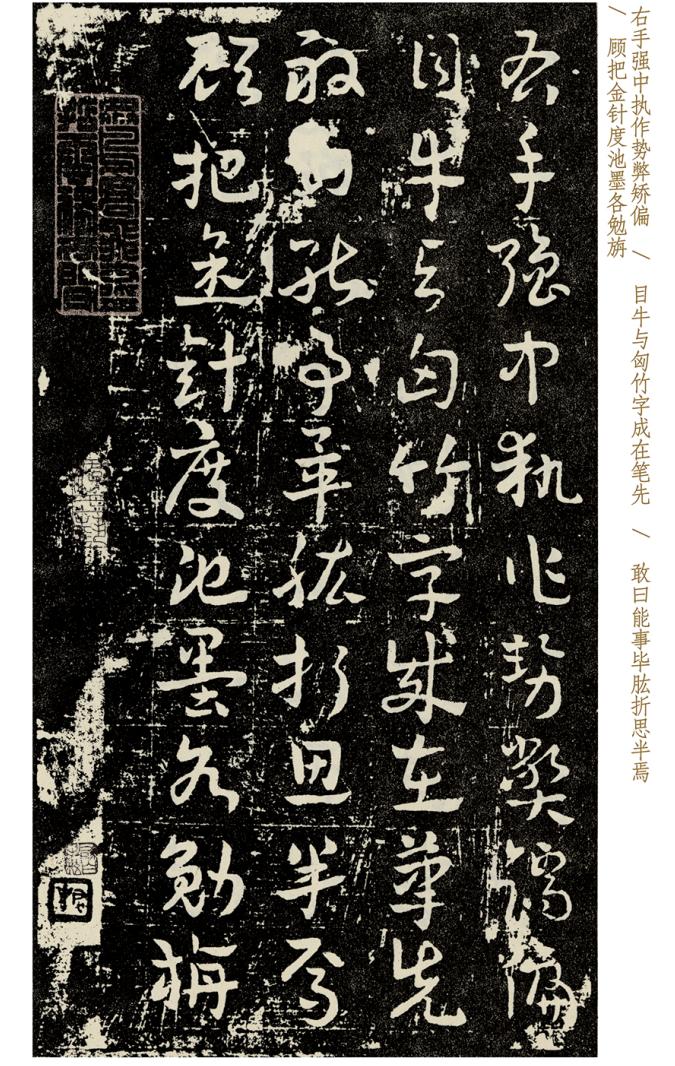 右手强中执作势弊矫偏 / 目牛与匈竹字成在笔先 / 敢曰能事毕肱折思半焉
/ 顾把金针度池墨各勉旃
右手强中执作势弊矯偏
目牛与匈竹字成在筆先
敢曰能事畢肱折思半焉
顾把金針度池墨各勉旃